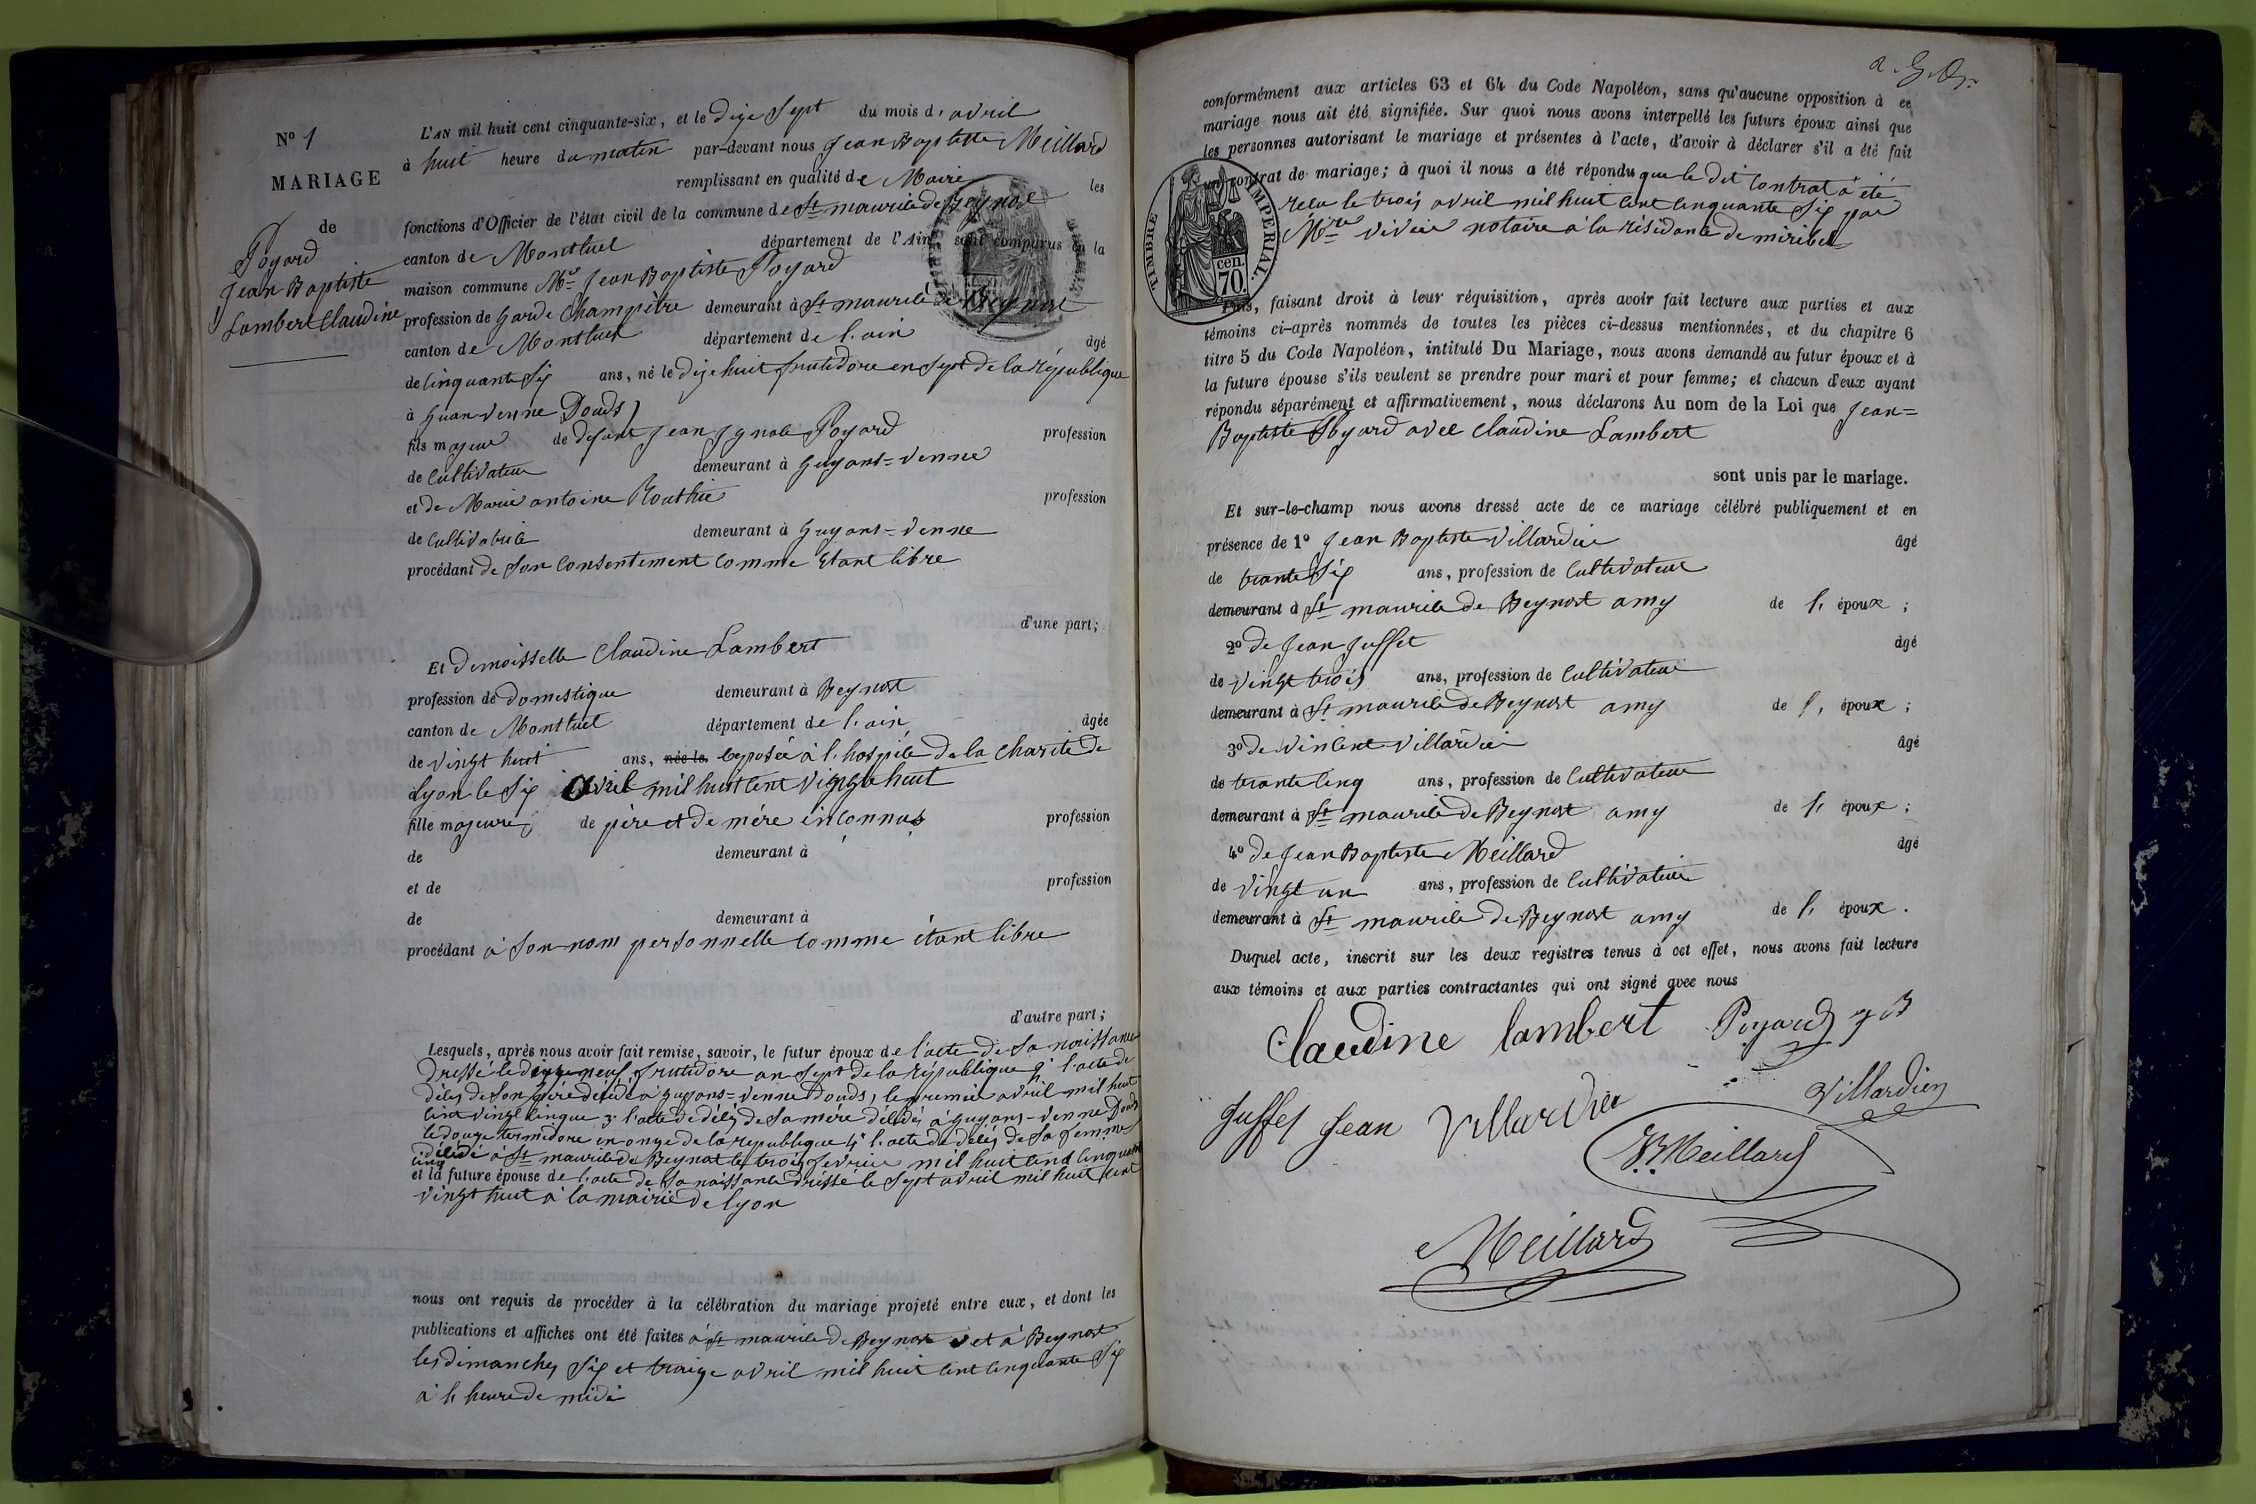 N° 1
MARIAGE
de
Poyard
Jean Baptiste
Lambert Claudine
L'AN mil huit cent cinquante-six, et le dixe Sept du mois d'avril
à huit heure du matin par-devant nous Jean Baptiste Meillard
remplissant en qualité de Maire les
fonctions d'Officier de l'état civil de la commune de St maurice de Beynost
canton de Montluel département de l'Ain, sont comparus en la
maison commune Mr Jean Baptiste Poyard
profession de Garde Champêtre demeurant à St maurice de Beynost
canton de Montluel département de l'ain âgé
de cinquante Six ans, né le dixe huit frutidore en Sept de la République
à Guan venne Douds)
fils majeur de défunt Jean Ignace Poyard profession
de Cultivateur demeurant à Guyans=venne
et de Marie antoine Routhie profession
de Cultivatrice demeurant à Guyans=venne
procédant de Son Consentement Comme étant libre
d'une part;
Et demoisselle Claudine Lambert
profession de domestique demeurant à Beynost
canton de Montluel département de l'ain âgée
de vingt huit ans, née le exposée à l'hospice de la Charité de
Lyon le Six avril mil huit cent vingt huit
fille majeure de père et de mère inconnus profession
de demeurant à
et de profession
de demeurant à
procédant à Son nom personnelle Comme étant libre
d'autre part;
Lesquels, après nous avoir fait remise, savoir, le futur époux de l'acte de Sa naissance
dressé le dixe neuf frutidore an Sept de la République 2° l'acte de
délès de Son père décédé à Guyans=venne Douds, le premier avril mil huit
cent vingt cinque 3° l'acte de délès de Sa mère décédé à Guyans-venne Douds
le douze termidore en onze de la republique 4° l'acte de délès de Sa femme
décédé à St maurice de Beynost le trois fevrier mil huit cent cinquante
cinq
et la future épouse de l'acte de Sa naissance dressé le Sept avril mil huit cent
vingt huit à la mairie de Lyon
nous ont requis de procéder à la célébration du mariage projeté entre eux, et dont les
publications et affiches ont été faites à St maurice de Beynost et à Beynost
les dimanches Six et traize avril mil huit cent cinquante Six
à l'heure de midi
conformément aux articles 63 et 64 du Code Napoléon, sans qu'aucune opposition à ce
mariage nous ait été signifiée. Sur quoi nous avons interpellé les futurs époux ainsi que
les personnes autorisant le mariage et présentes à l'acte, d'avoir à déclarer s'il a été fait
un contrat de mariage; à quoi il nous a été répondu que le dit Contrat a été
reçu le trois avril mil huit cent cinquante Six par
Mtre vivier notaire à la résidance de miribel
TIMBRE IMPERIAL.
cen.
70.
Puis, faisant droit à leur réquisition, après avoir fait lecture aux parties et aux
témoins ci-après nommés de toutes les pièces ci-dessus mentionnées, et du chapitre 6
titre 5 du Code Napoléon, intitulé Du Mariage, nous avons demandé au futur époux et à
la future épouse s'ils veulent se prendre pour mari et pour femme; et chacun d'eux ayant
répondu séparément et affirmativement, nous déclarons Au nom de la Loi que Jean=
Baptiste Poyard avec Claudine Lambert
sont unis par le mariage.
Et sur-le-champ nous avons dressé acte de ce mariage célébré publiquement et en
présence de 1° Jean Baptiste Villardier âgé
de trante Six ans, profession de Cultivateur
demeurant à St maurice de Beynost amy de l'époux;
2° de Jean Juffet âgé
de vingt trois ans, profession de Cultivateur
demeurant à St maurice de Beynost amy de l'époux;
3° de vincent Villardier âgé
de trante cinq ans, profession de Cultivateur
demeurant à St maurice de Beynost amy de l'époux;
4° de Jean Baptiste Meillard âgé
de vingt un ans, profession de Cultivateur
demeurant à St maurice de Beynost amy de l'époux.
Duquel acte, inscrit sur les deux registres tenus à cet effet, nous avons fait lecture
aux témoins et aux parties contractantes qui ont signé avec nous
Claudine lambert Poyard JB
Juffet Jean Villardier Villardier
JB Meillard
Meillard